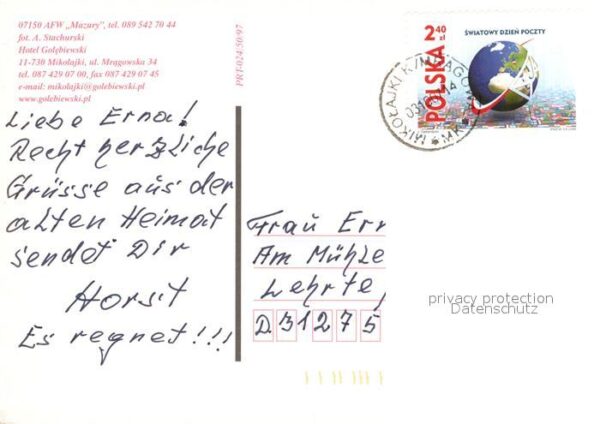 07150 AFW „Mazury", tel. 089 542 70 44
fot. A. Stachurski
Hotel Gołębiewski
11-730 Mikołajki, ul. Mrągowska 34
tel. 087 429 07 00, fax 087 429 07 45
e-mail: mikolajki@golebiewski.pl
www.golebiewski.pl
PRT-024/50/97
Liebe Erna!
Recht herzliche
Grüsse aus der
alten Heimat
sendet Dir
Horst
Es regnet!!!
2,40 zł
POLSKA
ŚWIATOWY DZIEŃ POCZTY
MIKOŁAJKI K/MRĄGOWA
Frau Er
Am Mühle
Lehrte,
D 31275
privacy protection
Datenschutz